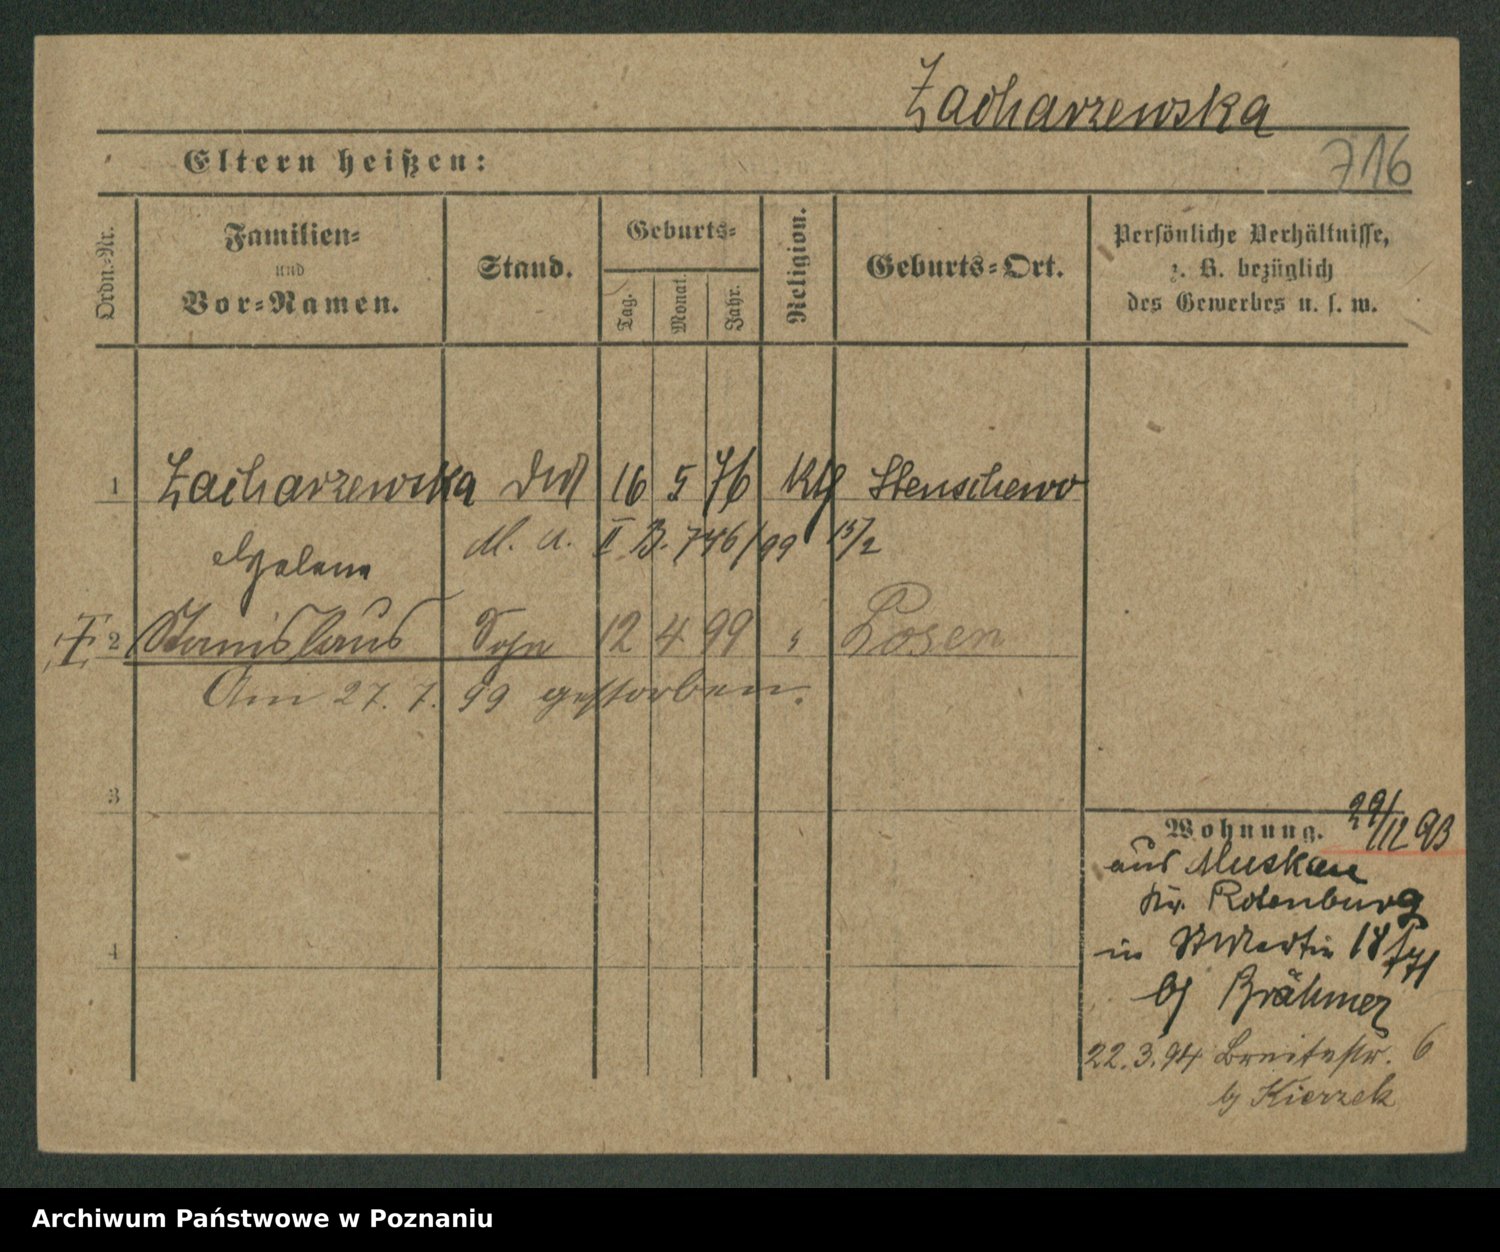 Zacharzewska
Eltern heißen:
716
Ordn.-Nr.
Familien-
und
Vor-Namen.
Stand.
Geburts-
Tag.
Monat.
Jahr.
Religion.
Geburts-Ort.
Persönliche Verhältnisse,
z. B. bezüglich
des Gewerbes u. s. w.
1 Zacharzewska 16 5 76 Stenschewo
M. A. II B. 746/99 15/2
Helene
2 Stanislaus Sohn 12 4 99 " Posen
Am 27. 7. 99 gestorben.
3
4
Wohnung. 29/12 93
aus Muskau
Kr. Rotenburg
in St Martin 18
bj Brähmer
22.3.94 Breitestr. 6
bj Kierzek
Archiwum Państwowe w Poznaniu